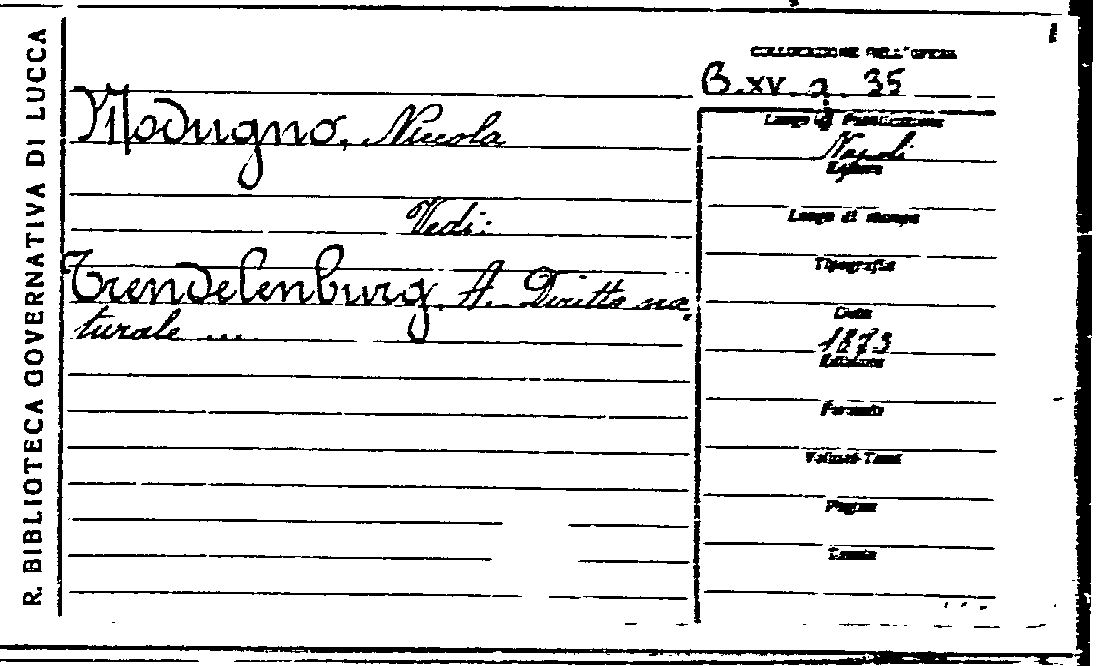 R. BIBLIOTECA GOVERNATIVA DI LUCCA
COLLOCAZIONE DELL'OPERA
B. XV. g. 35
Modugno, Niccola
Vedi:
Trendelenburg, A. Diritto na-
turale ...
Luogo di Pubblicazione
Napoli
Editore
Luogo di stampa
Tipografia
Data
1873
Edizione
Formato
Volumi-Tomi
Pagine